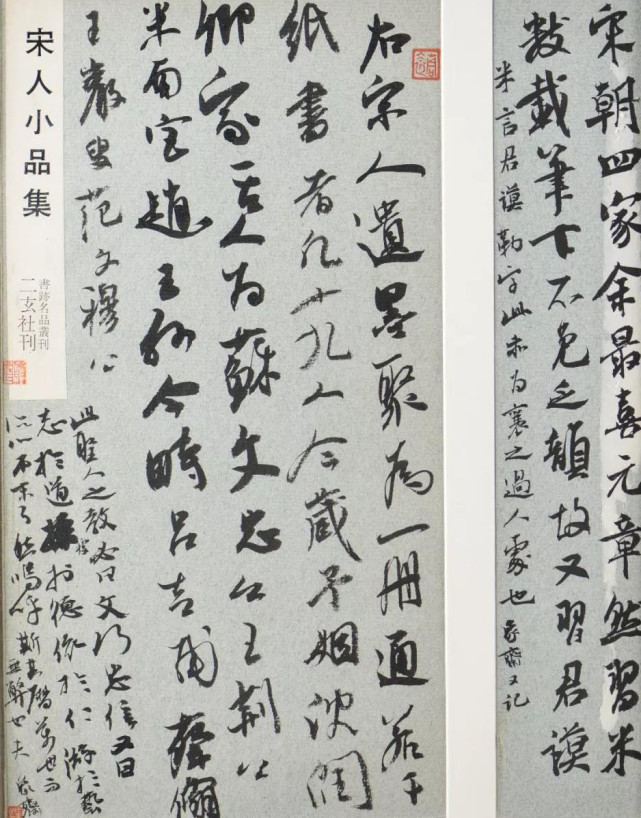 宋朝四家余最喜元章然習米
數載筆下不免乏韻故又習君謨
米言君謨勒字此亦為襄之過人處也 齋又记
右宗人遺墨聚為一册通若干
紙書者凡十九人今藏予姻沈潤
卿家一古人为蘇文忠公王荆公
米南宫趙王孙今時吕吉甫蔡
王巖叟范文穆公
此聖人之教必曰文行忠信又曰
志於道 於德依於仁游於藝
嗚呼斯
宋人小品集
書跡名品叢刊
二玄社刊